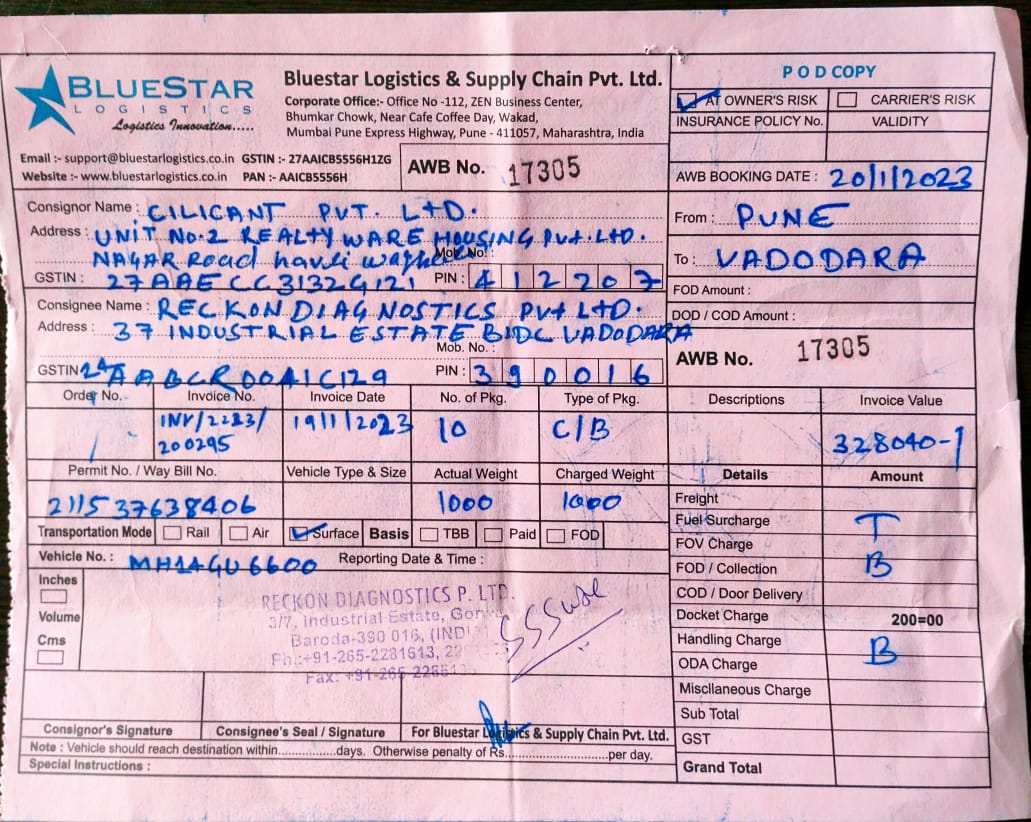 BLUESTAR
LOGISTICS
Logistics Innovation.....
Bluestar Logistics & Supply Chain Pvt. Ltd.
Corporate Office:- Office No -112, ZEN Business Center,
Bhumkar Chowk, Near Cafe Coffee Day, Wakad,
Mumbai Pune Express Highway, Pune - 411057, Maharashtra, India
Email :- support@bluestarlogistics.co.in GSTIN :- 27AAICB5556H1ZG
Website :- www.bluestarlogistics.co.in PAN :- AAICB5556H
AWB No. 17305
POD COPY
AT OWNER'S RISK CARRIER'S RISK
INSURANCE POLICY No. VALIDITY
AWB BOOKING DATE : 20/1/2023
Consignor Name : CILICANT PVT. LTD.
Address : UNIT NO.2 REALTY WARE HOUSING PVT. LTD.
NAGAR Road haveli Mob. No. :
GSTIN : 27AAECC3132G1Z1 PIN : 412207
From : PUNE
To : VADODARA
FOD Amount :
DOD / COD Amount :
Consignee Name : RECKON DIAGNOSTICS PVT LTD.
Address : 37 INDUSTRIAL ESTATE BIDC VADODARA
Mob. No. :
GSTIN 24AABCR0041C1Z9 PIN : 390016
AWB No. 17305
Order No. Invoice No. Invoice Date No. of Pkg. Type of Pkg. Descriptions Invoice Value
INV/2223/ 19/1/2023 10 C/B 328040-/
200295
Permit No. / Way Bill No. Vehicle Type & Size Actual Weight Charged Weight Details Amount
211537638406 1000 1000
Freight
Transportation Mode Rail Air Surface Basis TBB Paid FOD
Fuel Surcharge T
Vehicle No. : MH14GU6600 Reporting Date & Time :
FOV Charge
FOD / Collection B
COD / Door Delivery
Docket Charge 200=00
Handling Charge B
ODA Charge
Misclianeous Charge
Sub Total
GST
Grand Total
Inches
Volume
Cms
RECKON DIAGNOSTICS P. LTD.
3/7, Industrial Estate,
Baroda-390 016,
Ph.:+91-265-2281613,
Fax: +91-265
Consignor's Signature Consignee's Seal / Signature For Bluestar Logistics & Supply Chain Pvt. Ltd.
Note : Vehicle should reach destination within.................days. Otherwise penalty of Rs.........................per day.
Special Instructions :